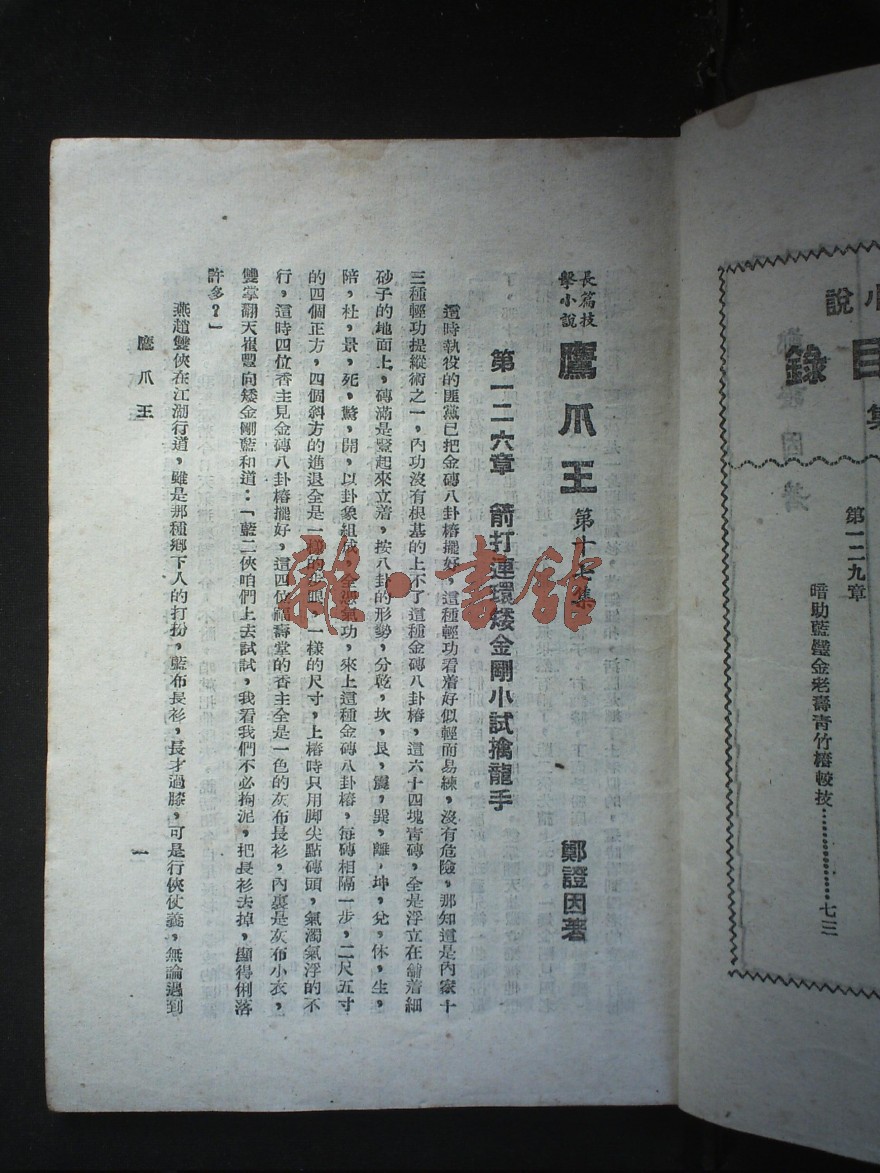 小說
目錄
集
第一二九章
暗助藍璧金老壽青竹樁較技………………七三
長篇技擊小說
鷹爪王
第十七集
鄭證因著
第一二六章 箭打連環矮金剛小試擒龍手
這時執役的匪黨已把金磚八卦樁擺好，這種輕功看着好似輕而易練，沒有危險，那知這是內家十
三種輕功提縱術之一，內功沒有根基的上不了這種金磚八卦樁，這六十四塊青磚，全是浮立在舖着細
砂子的地面上，磚滿是豎起來立着，按八卦的形勢，分乾，坎，艮，震，巽，離，坤，兌，休，生，
陪，杜，景，死，驚，開，以卦象組成，全憑氣功，來上這種金磚八卦樁，每磚相隔一步，二尺五寸
的四個正方，四個斜方的進退全是一樣的步眼，一樣的尺寸，上樁時只用脚尖點磚頭，氣濁氣浮的不
行，這時四位香主見金磚八卦樁擺好，這四位福壽堂的香主全是一色的灰布長衫，內裏是灰布小衣，
雙掌翻天崔豐向矮金剛藍和道：「藍二俠咱們上去試試，我看我們不必拘泥，把長衫去掉，顯得俐落
許多？」
燕趙雙俠在江湖行道，雖是那種鄉下人的打扮，藍布長衫，長才過膝，可是行俠仗義，無論遇到
鷹爪王
一
雜·書館